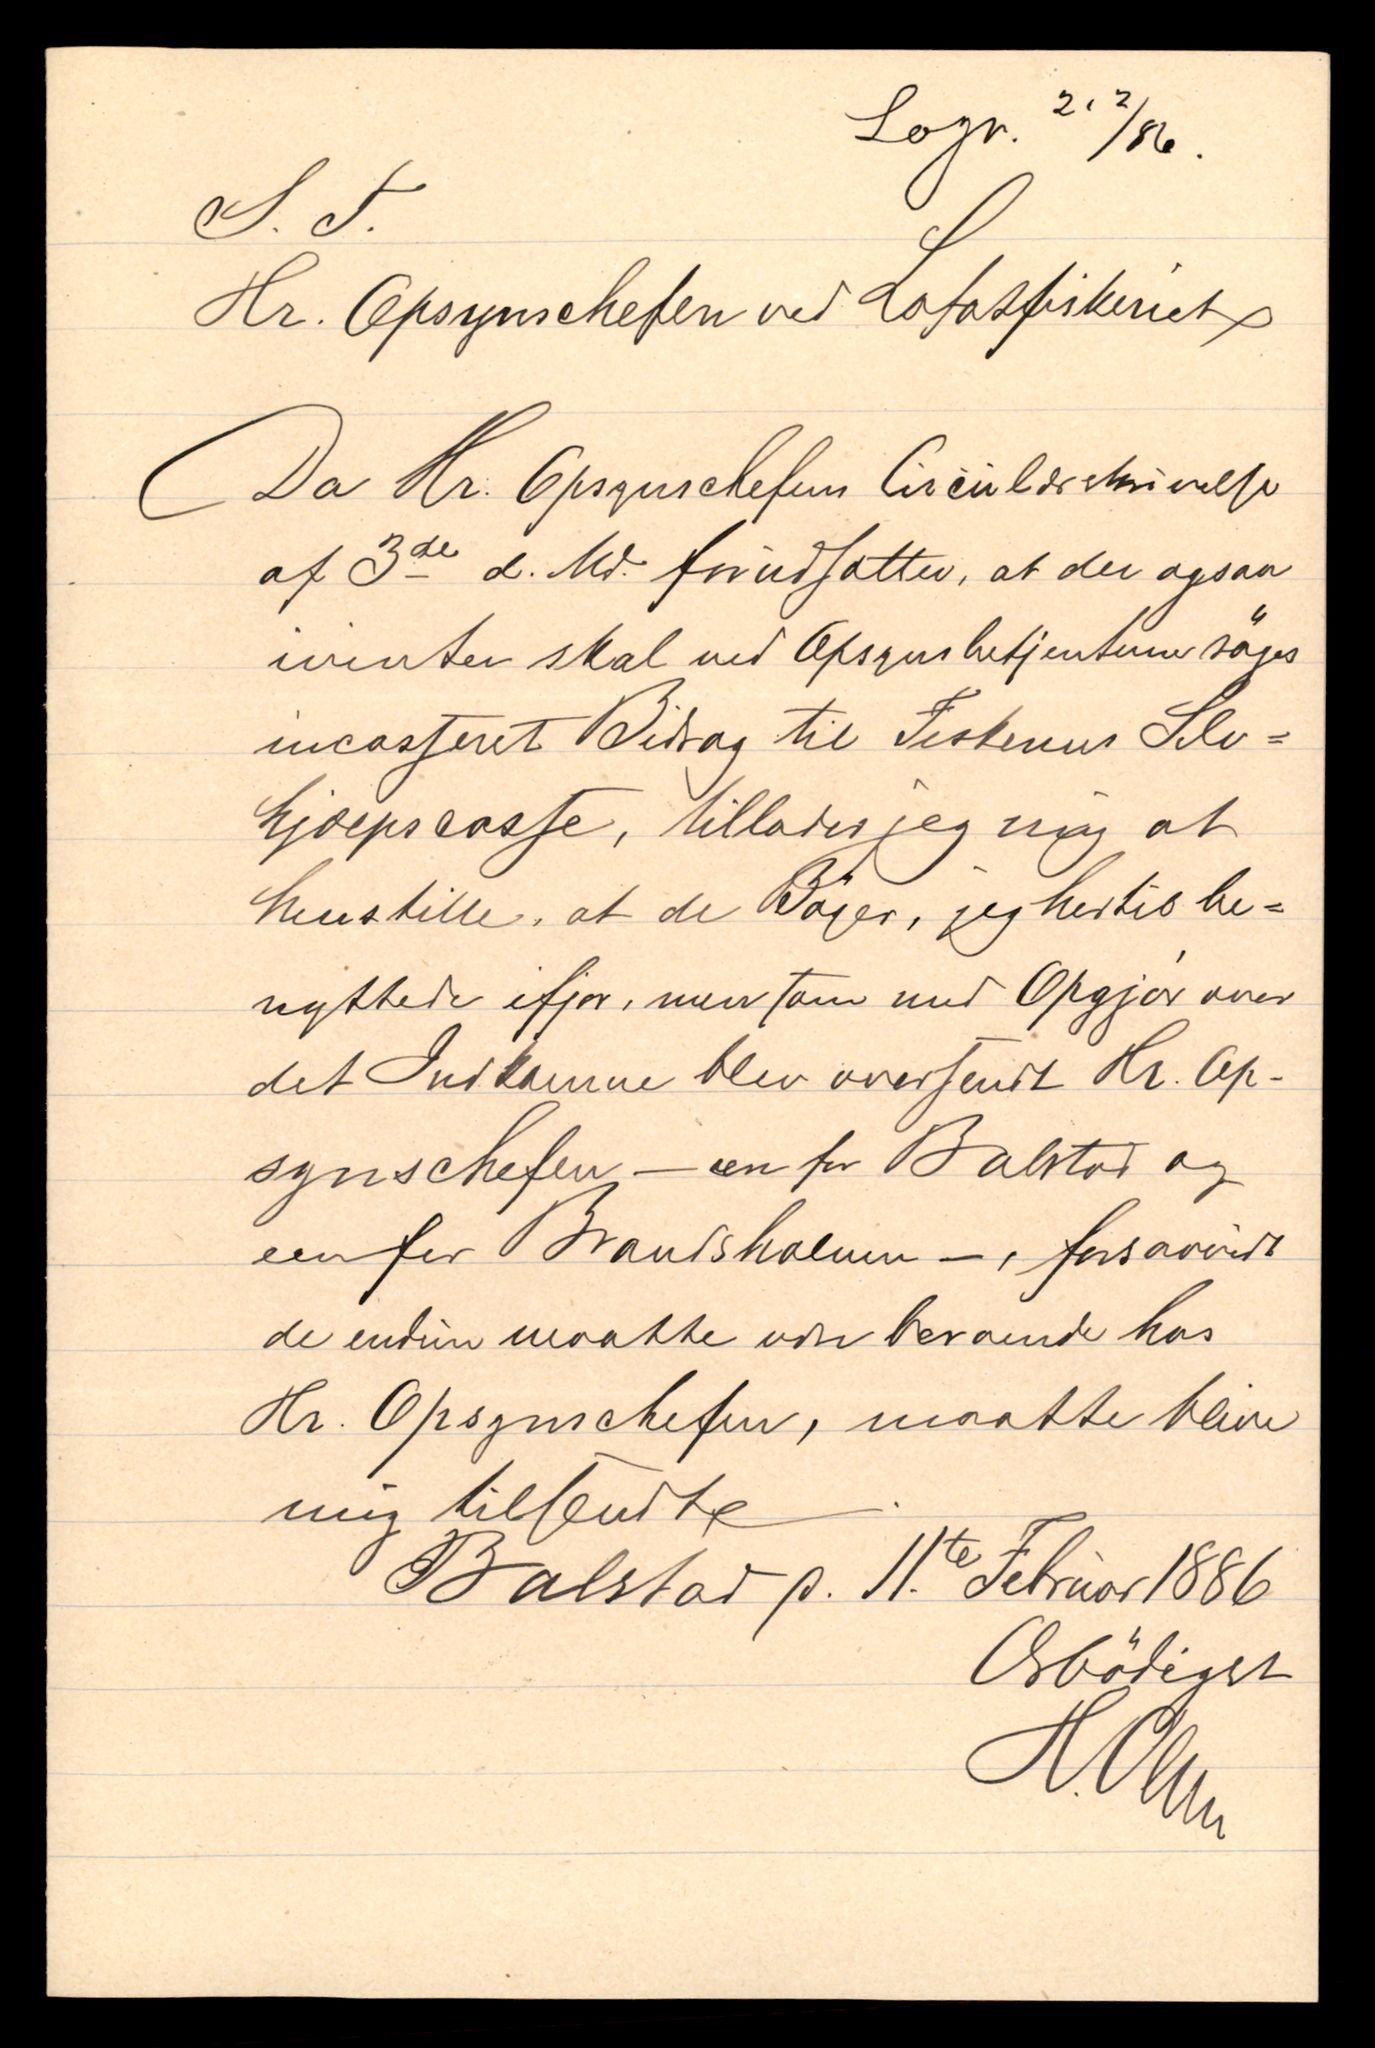 S. T.
Hr. Opsynschefen ved Lofotfiskeriet
Da Hr. Opsynschefens Circülærskrivelse
af 3de d. Md. forüdsætter, at der ogsaa
ivinter skal ved Opsynsbetjentene söges
incasseret Bidrag til Fiskernes Selv=
hjælpscasse, tillader jeg mig at
henstille, at de Böger, jeg hertil be=
nyttede ifjor, men som med Opgjör over
det Indkomne blev oversendt Hr. Op-
synschefen – en for Balstad og
een for Brandsholmen –, forsaavidt
de endnü maatte være beroende hos
Hr. Opsynschefen, maatte blive
mig tilsendte.
Balstad p. 11.te Februar 1886
Ærbödigst
H. Olsen